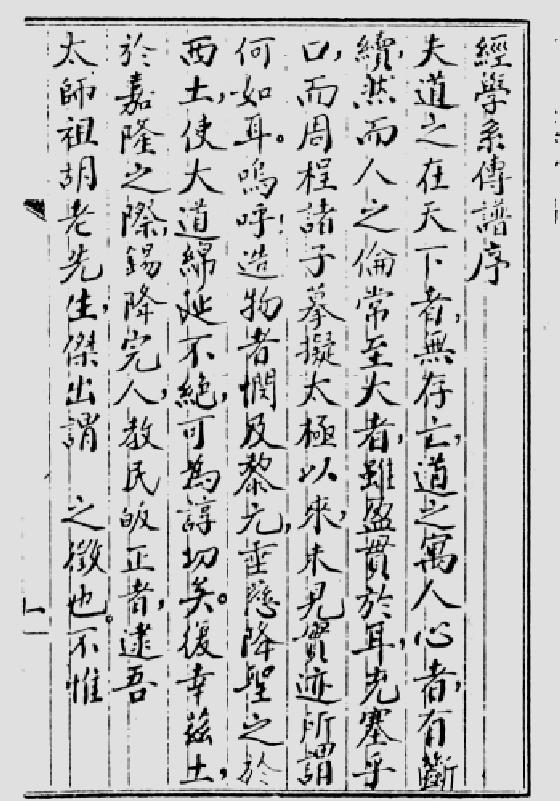 經學系傳譜序
夫道之在天下者,無存亡,道之寓人心者,有斷
續,然而人之倫常至大者,雖盈貫於耳,充塞乎
口,而周程諸子摹擬太極以來,未見實迹所謂
何如耳。嗚呼!造物者憫及黎元,垂慈降聖之於
西土,使大道綿延不絕,可為諄切矣。後幸茲土,
於嘉隆之際,錫降完人,教民皈正者,逮吾
太師祖胡老先生,傑出謂 之徵也。不惟
一